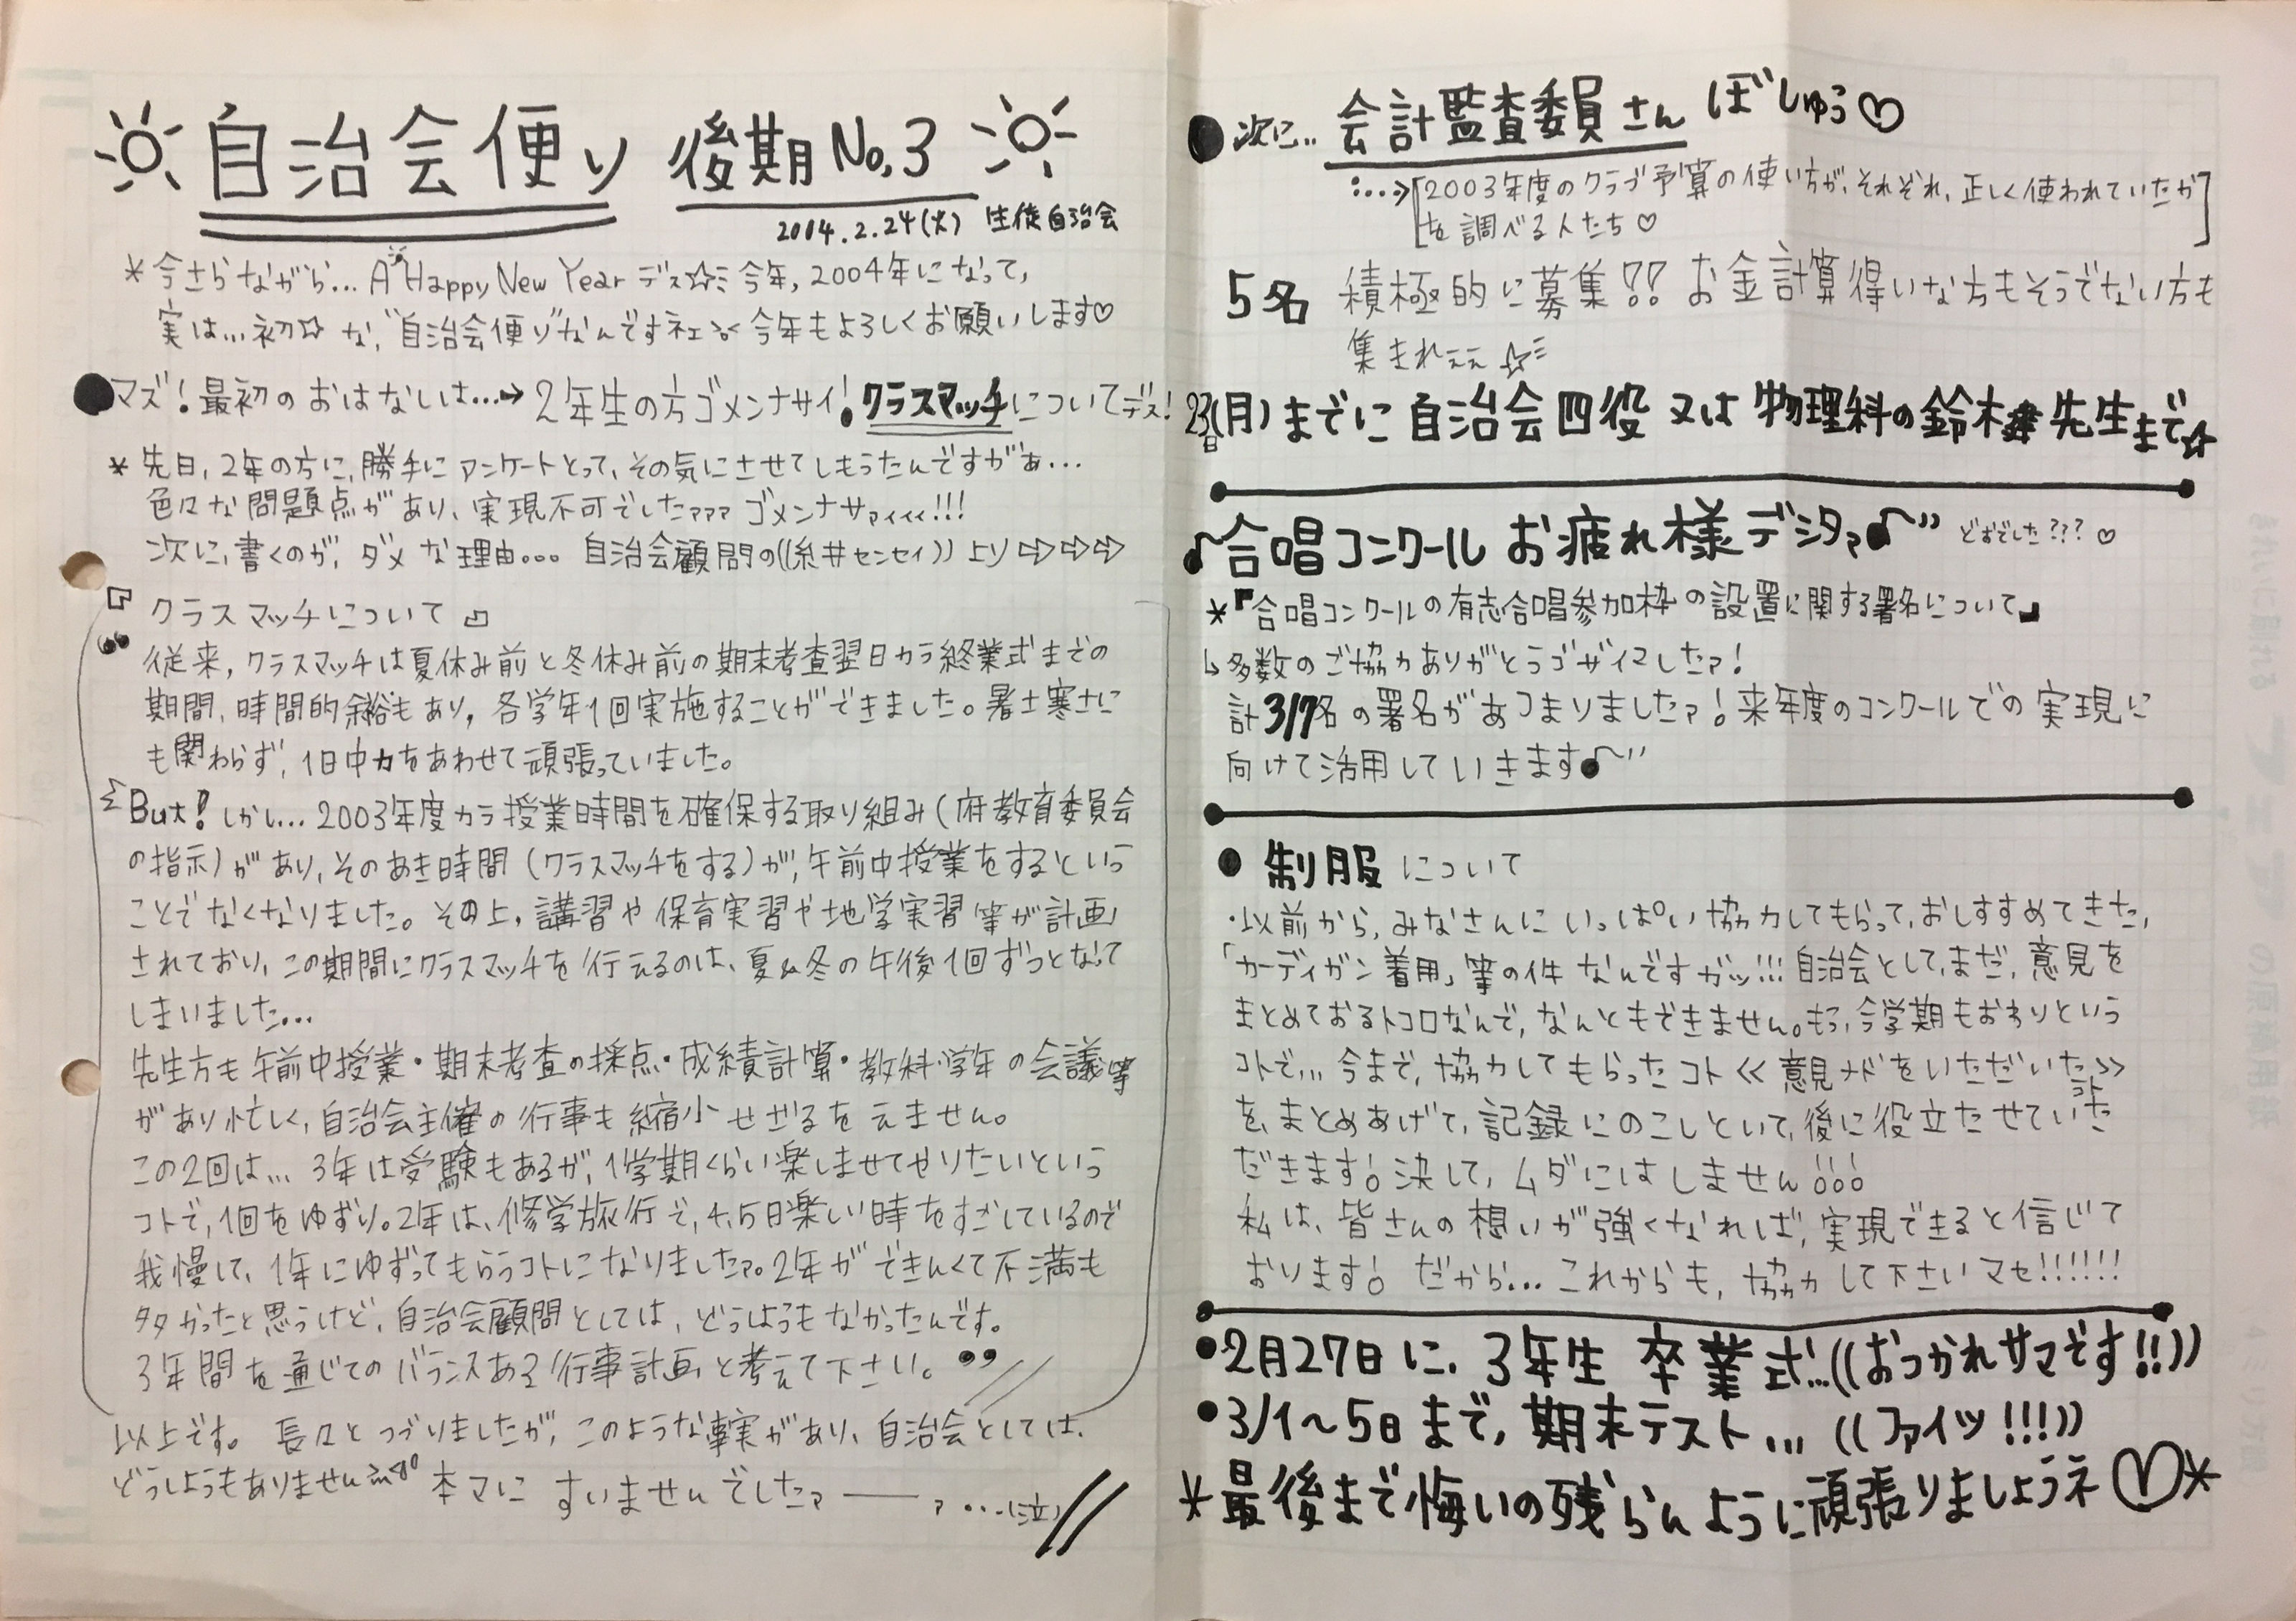 自治会便り 後期 No.3
2004.2.24(火) 生徒自治会
*今さらながら… A Happy New Year デス☆ミ 今年, 2004年になって,
実は…初☆ な, "自治会便り"なんですネェ 今年もよろしくお願いします♡
●マズ! 最初のおはなしは…→ 2年生の方ゴメンナサイ! クラスマッチについてデス!
*先日, 2年の方に, 勝手にアンケートとって, その気にさせてしもうたんですがぁ…
色々な問題点があり, 実現不可でしたァァァ ゴメンナサァィィィ!!!
次に, 書くのが, ダメな理由。。。 自治会顧問の((糸井センセイ))より⇨⇨⇨
『クラスマッチについて』
“従来, クラスマッチは夏休み前と冬休み前の期末考査翌日カラ終業式までの
期間, 時間的余裕もあり, 各学年1回実施することができました。暑さ寒さに
も関わらず, 1日中力をあわせて頑張っていました。
But! しかし… 2003年度カラ授業時間を確保する取り組み(府教育委員会
の指示)があり, そのあき時間(クラスマッチをする)が, 午前中授業をするという
ことでなくなりました。その上, 講習や保育実習や地学実習等が計画
されており, この期間にクラスマッチを行えるのは, 夏&冬の午後1回ずつとなって
しまいました…
先生方も午前中授業・期末考査の採点・成績計算・教科・学年の会議等
があり忙しく, 自治会主催の行事も縮小せざるをえません。
この2回は… 3年は受験もあるが, 1学期くらい楽しませてやりたいという
コトで, 1回をゆずり。2年は, 修学旅行で, 4,5日楽しい時をすごしているので
我慢して, 1年にゆずってもらうコトになりましたァ。2年ができんくて不満も
多かったと思うけど, 自治会顧問としては, どうしようもなかったんです。
3年間を通じてのバランスある行事計画と考えて下さい。”
以上です。 長々とつづりましたが, このような事実があり, 自治会としては,
どうしようもありません 本マに すいませんでしたァ――ァ…(泣)
●次に… 会計監査委員さん ぼしゅう♡
…→[2003年度のクラブ予算の使い方が, それぞれ, 正しく使われていたか
を調べる人たち♡]
5名 積極的に募集!! お金計算得いな方もそうでない方も
集まれェェ ☆ミ
23日(月)までに自治会四役 又は 物理科の鈴木 先生まで☆
♪合唱コンクール お疲れ様デシタァ♪” どおでした??? ♡
*『合唱コンクールの有志合唱参加枠の設置に関する署名について』
↳多数のご協力ありがとうゴザイマしたァ!
計317名の署名があつまりましたァ! 来年度のコンクールでの実現に
向けて活用していきます♪”
● 制服について
・以前から, みなさんにいっぱい協力してもらって, おしすすめてきた,
「カーディガン着用」等の件なんですガッ!!! 自治会として, まだ, 意見を
まとめておるトコロなんで, なんともできません。もう, 今学期もおわりという
コトで… 今まで, 協力してもらったコト≪意見ナドをいただいたコト≫
を, まとめあげて, 記録にのこしといて, 後に役立たせていた
だきます! 決して, ムダにはしません!!!
私は, 皆さんの想いが強くなれば, 実現できると信じて
おります! だから… これからも, 協力して下さいマセ!!!!!!
●2月27日に, 3年生 卒業式…((おつかれサマです!!))
●3/1～5日まで, 期末テスト… ((ファイッ!!!))
*最後まで悔いの残らんように頑張りましょうネ♡*